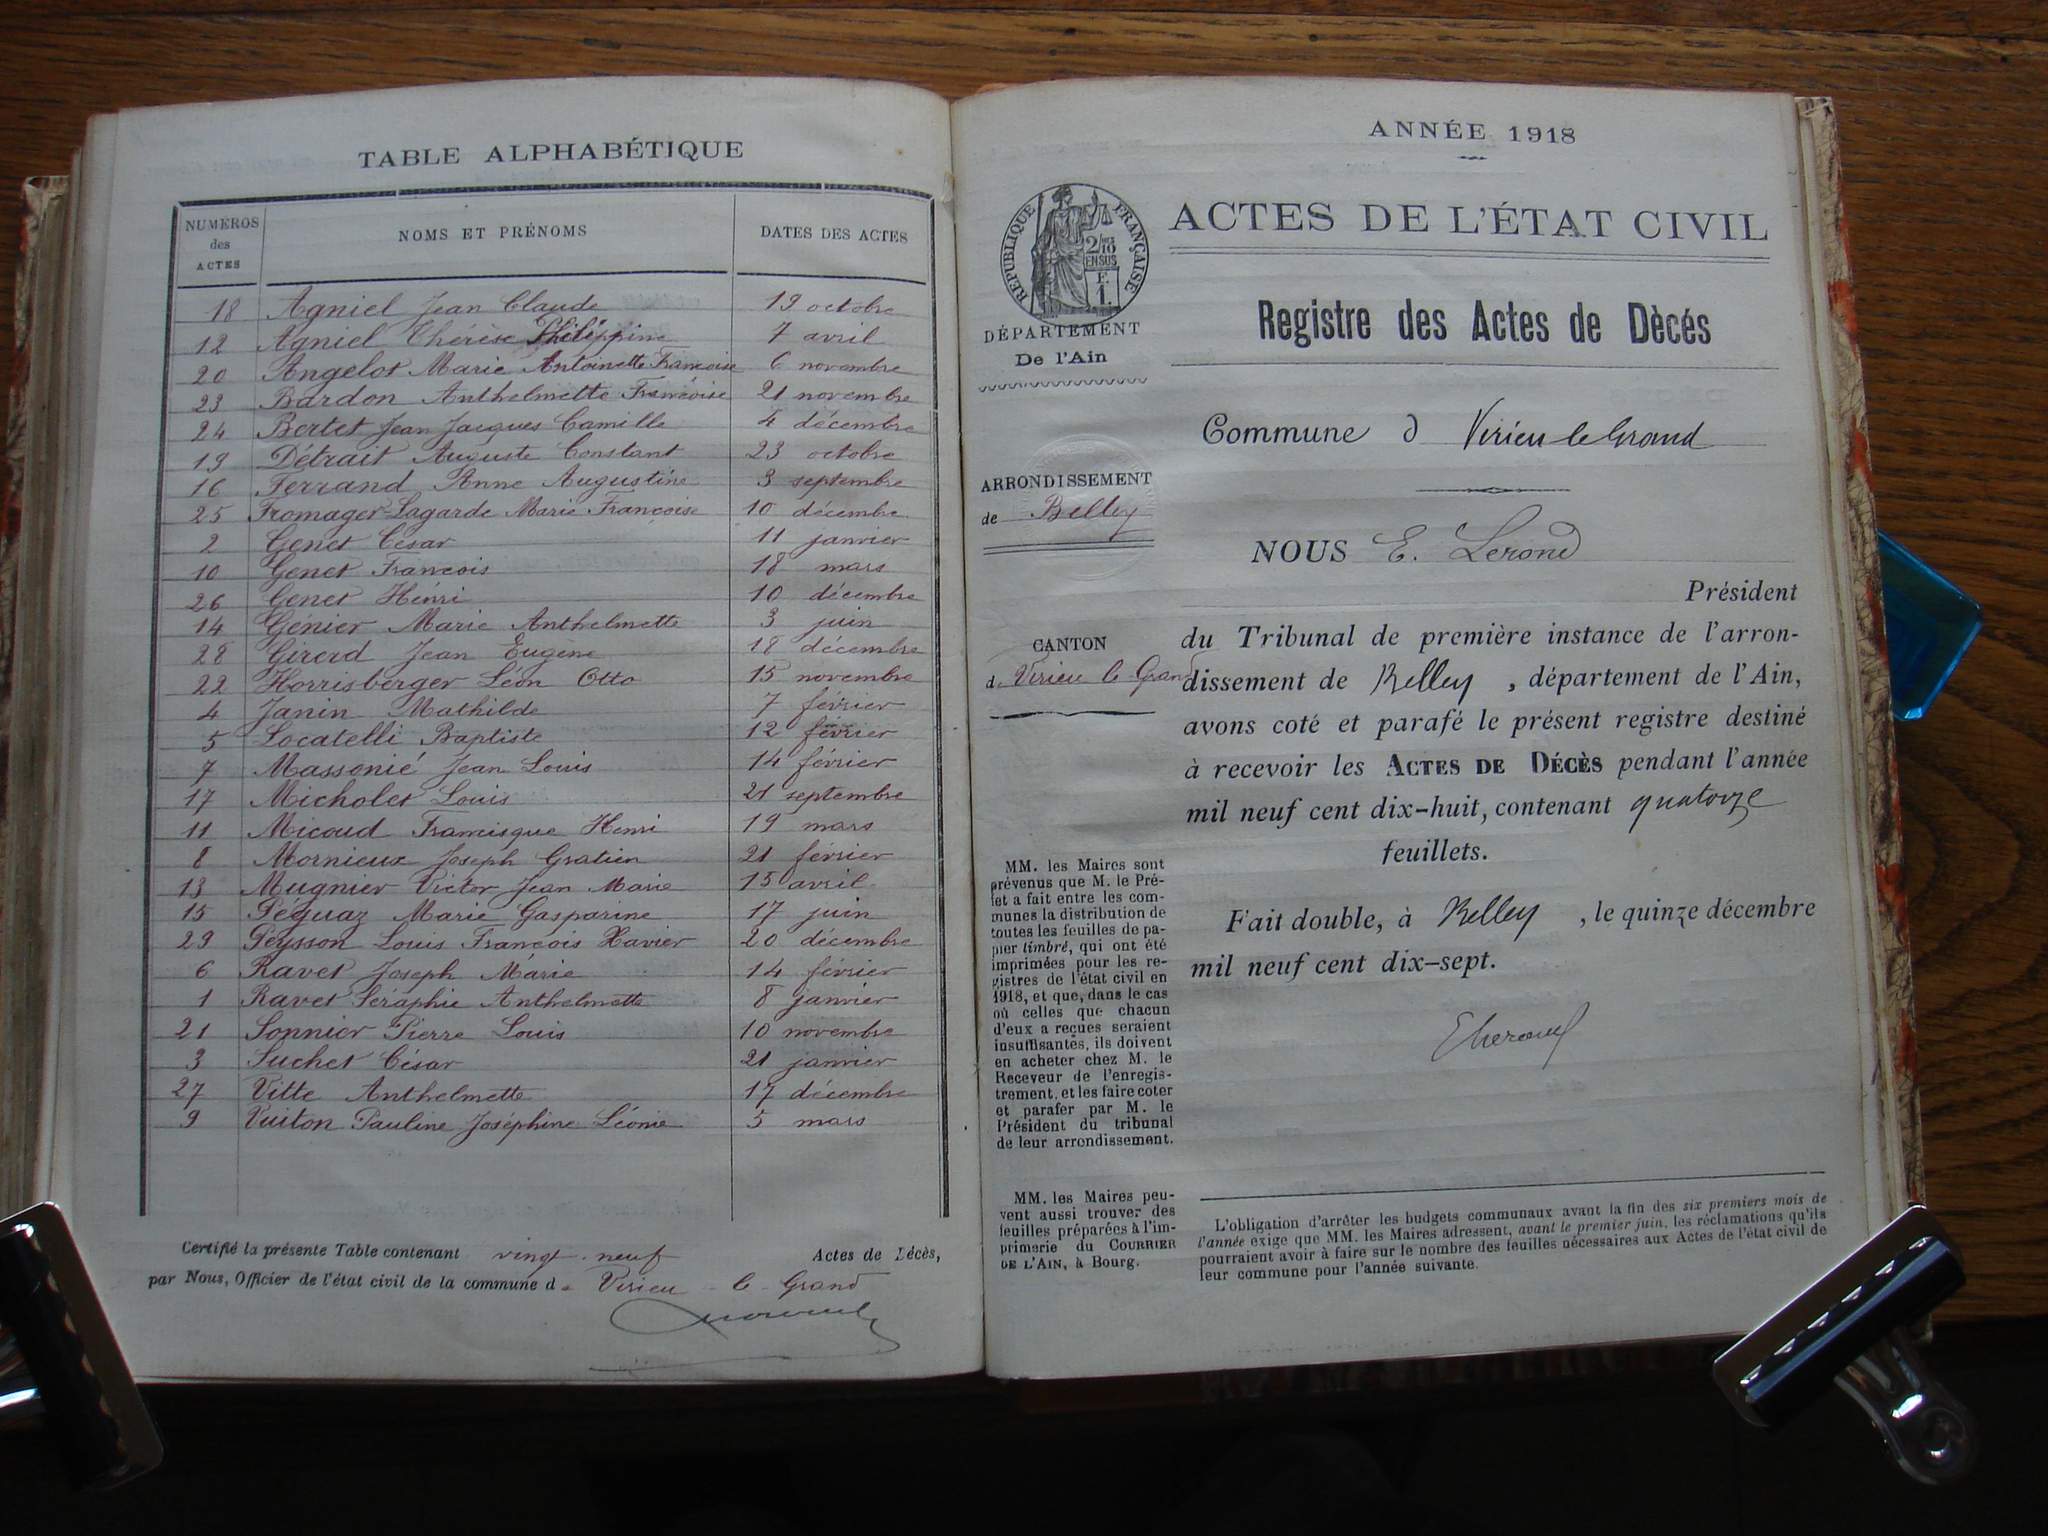 TABLE ALPHABÉTIQUE
NUMÉROS des ACTES NOMS ET PRÉNOMS DATES DES ACTES
18 Agniel Jean Claude 19 octobre
12 Agniel Thérèse Philippine 7 avril
20 Angelot Marie Antoinette Françoise 6 novembre
23 Bardon Anthelmette Françoise 21 novembre
24 Bertet Jean Jacques Camille 4 décembre
19 Détrait Auguste Constant 23 octobre
16 Ferrand Anne Augustine 3 septembre
25 Fromager-Lagarde Marie Françoise 10 décembre
2 Genet César 11 janvier
10 Genet François 18 mars
26 Genet Hénri 10 décembre
14 Genier Marie Anthelmette 3 juin
28 Girerd Jean Eugene 18 décembre
22 Horrisberger Léon Otto 15 novembre
4 Janin Mathilde 7 février
5 Locatelli Baptiste 12 février
7 Massonié Jean Louis 14 février
17 Micholet Louis 21 septembre
11 Micoud Francisque Henri 19 mars
8 Mornieux Joseph Gratien 21 février
13 Mugnier Victor Jean Marie 15 avril
15 Péguaz Marie Gasparine 17 juin
29 Peysson Louis François Xavier 20 décembre
6 Ravet Joseph Marie 14 février
1 Ravet Séraphie Anthelmette 8 janvier
21 Sonnier Pierre Louis 10 novembre
3 Suchet César 21 janvier
27 Vitte Anthelmette 17 décembre
9 Vuiton Pauline Joséphine Léonie 5 mars
Certifié la présente Table contenant vingt-neuf Actes de Décès,
par Nous, Officier de l'état civil de la commune de Virieu-le-Grand
ANNÉE 1918
RÉPUBLIQUE FRANÇAISE
2/10
EN SUS
F.
1.
DÉPARTEMENT
De l'Ain
ARRONDISSEMENT
de Belley
CANTON
d Virieu le Grand
MM. les Maires sont
prévenus que M. le Pré-
fet a fait entre les com-
munes la distribution de
toutes les feuilles de pa-
pier timbré, qui ont été
imprimées pour les re-
gistres de l'état civil en
1918, et que, dans le cas
où celles que chacun
d'eux a reçues seraient
insuffisantes, ils doivent
en acheter chez M. le
Receveur de l'enregis-
trement, et les faire coter
et parafer par M. le
Président du tribunal
de leur arrondissement.
MM. les Maires peu-
vent aussi trouver des
feuilles préparées à l'im-
primerie du COURRIER
DE L'AIN, à Bourg.
ACTES DE L'ÉTAT CIVIL
Registre des Actes de Dècés
Commune d Virieu le Grand
NOUS E. Lerond
Président
du Tribunal de première instance de l'arron-
dissement de Belley, département de l'Ain,
avons coté et parafé le présent registre destiné
à recevoir les ACTES DE DÉCÈS pendant l'année
mil neuf cent dix-huit, contenant quatorze
feuillets.
Fait double, à Belley, le quinze décembre
mil neuf cent dix-sept.
L'obligation d'arrêter les budgets communaux avant la fin des six premiers mois de
l'année exige que MM. les Maires adressent, avant le premier juin, les réclamations qu'ils
pourraient avoir à faire sur le nombre des feuilles nécessaires aux Actes de l'état civil de
leur commune pour l'année suivante.